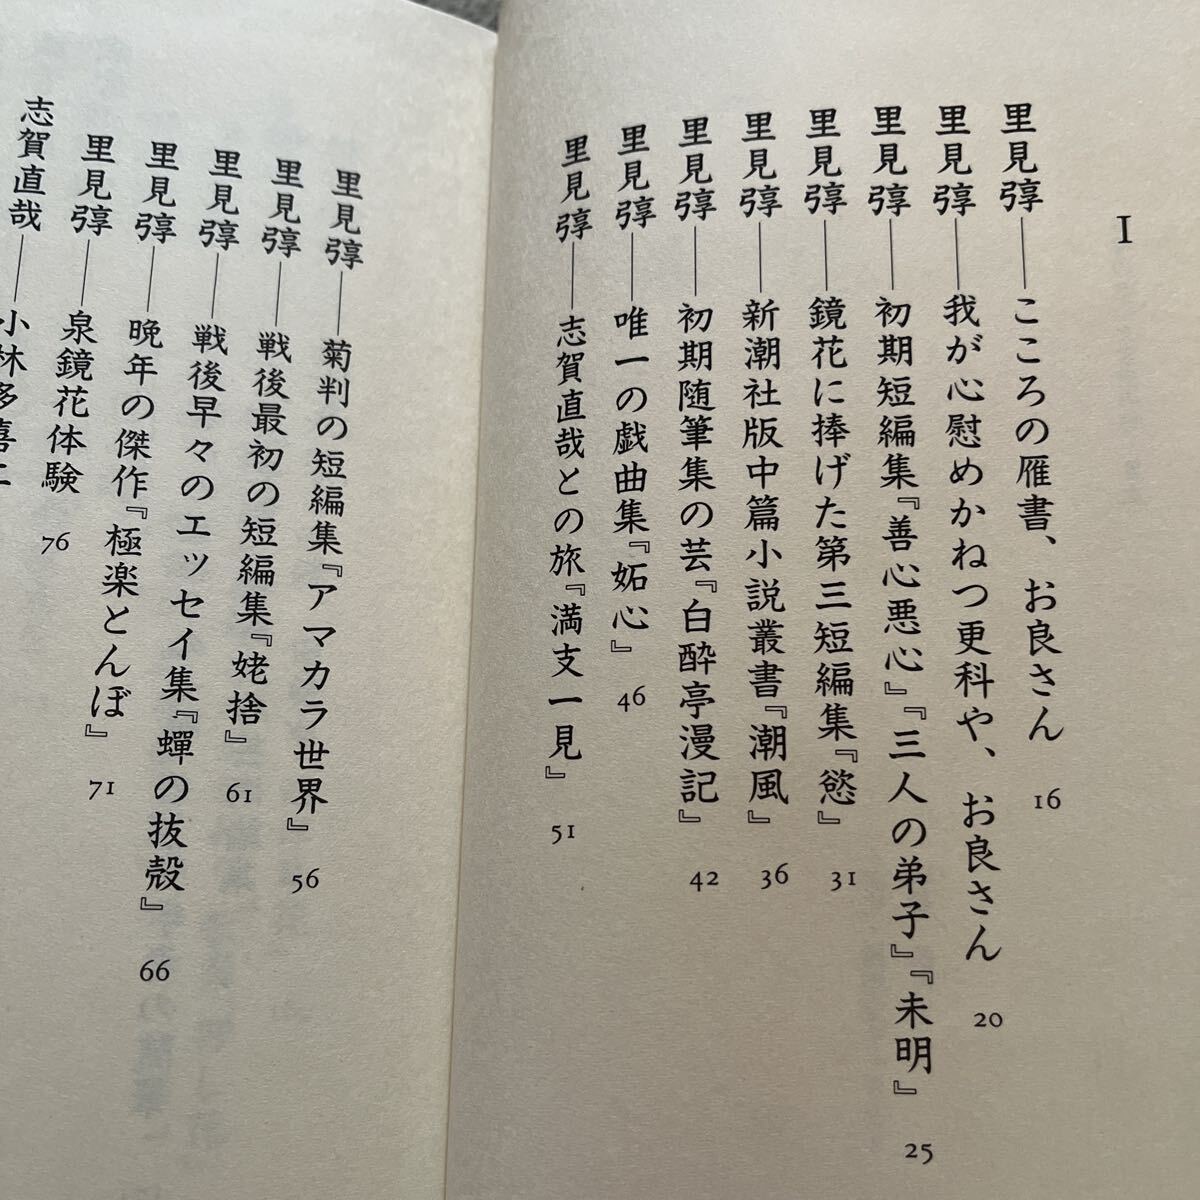 I
里見弴――こころの雁書、お良さん 16
里見弴――我が心慰めかねつ更科や、お良さん 20
里見弴――初期短編集『善心悪心』『三人の弟子』『未明』 25
里見弴――鏡花に捧げた第三短編集『慾』 31
里見弴――新潮社版中篇小説叢書『潮風』 36
里見弴――初期随筆集の芸『白酔亭漫記』 42
里見弴――唯一の戯曲集『妬心』 46
里見弴――志賀直哉との旅『満支一見』 51
里見弴――菊判の短編集『アマカラ世界』 56
里見弴――戦後最初の短編集『姥捨』 61
里見弴――戦後早々のエッセイ集『蟬の抜殻』 66
里見弴――晩年の傑作『極楽とんぼ』 71
里見弴――泉鏡花体験 76
志賀直哉――小林多喜二